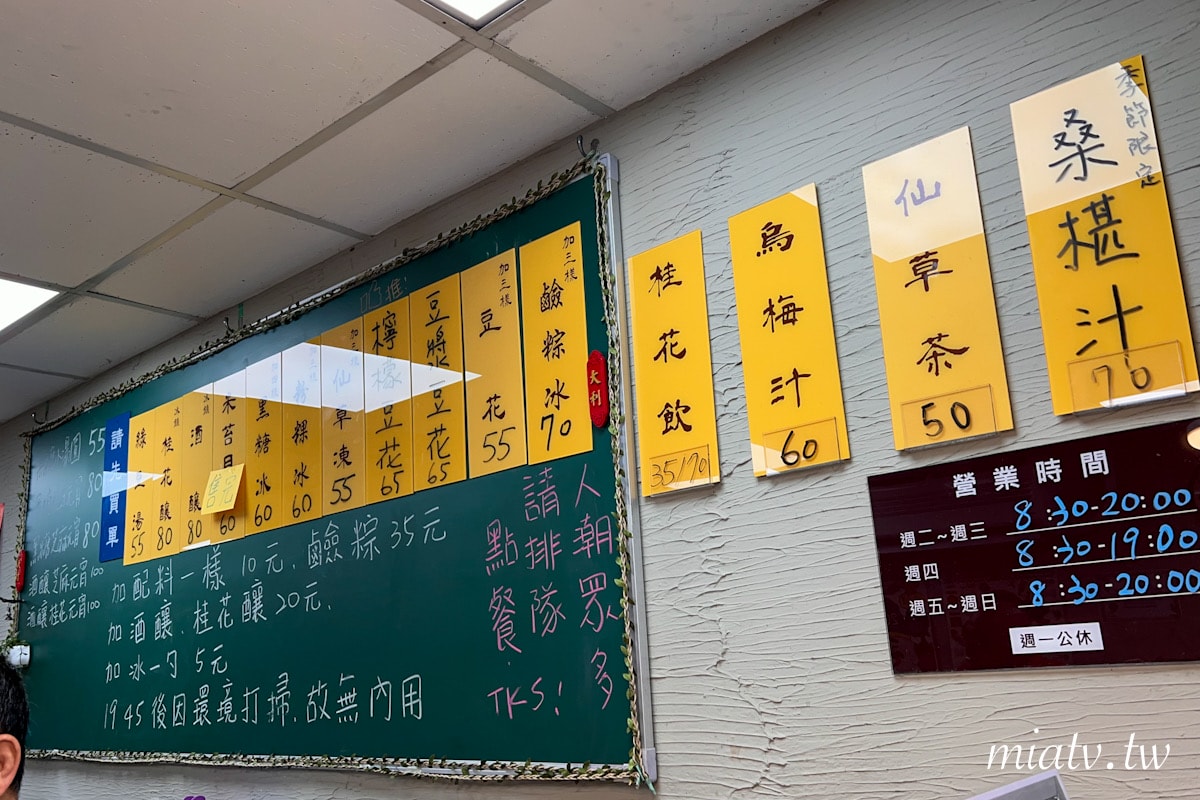 季節限定
桑椹汁
70
仙草茶
50
烏梅汁
60
桂花飲
35/70
加三樣
鹼粽冰
70
加三樣
豆花
55
豆漿冰豆花
65
檸檬豆花
65
加三樣
仙草凍
55
粉粿冰
60
黑糖冰
60
60
售完
酒釀
80
桂花釀
80
綠豆湯
55
請先買單
大利
55
80
80
酒釀芝麻元宵100
酒釀桂花元宵100
加配料一樣10元.鹼粽35元
加酒釀.桂花釀20元.
加冰一勺5元
19:45後因環境打掃.故無內用
人朝眾多
請排隊
點餐.TKS!
營業時間
週二~週三 8:30-20:00
週四 8:30-19:00
週五~週日 8:30-20:00
週一公休
miatv.tw